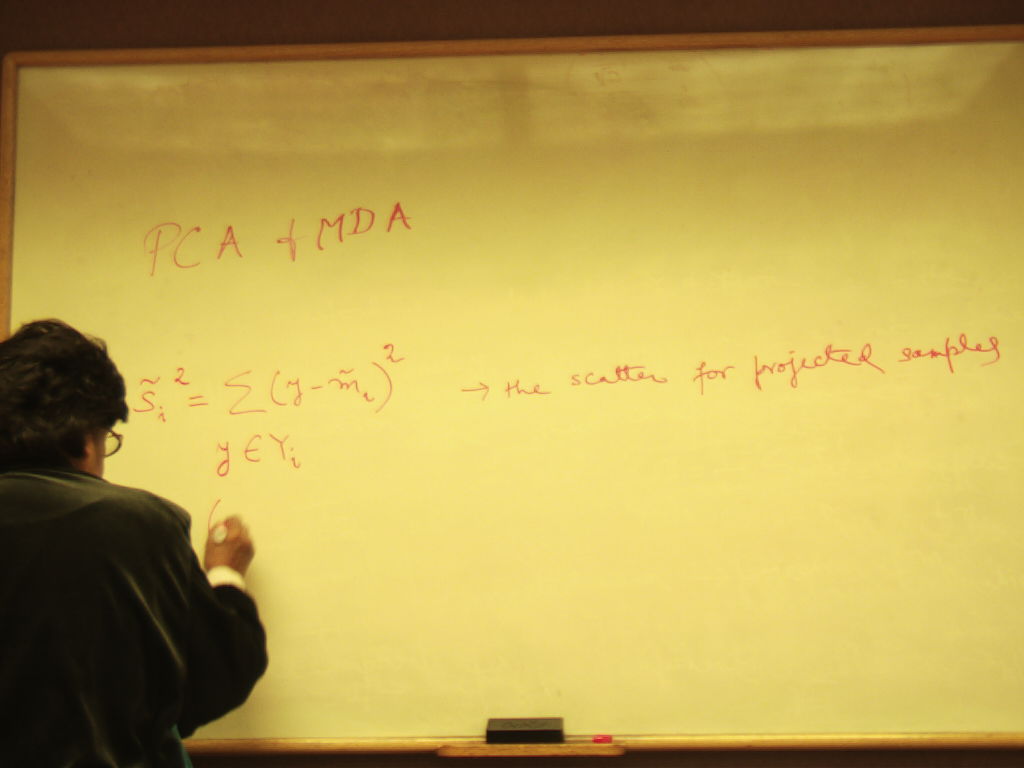 PCA & MDA
s̃ᵢ² = ∑(y - m̃ᵢ)² → the scatter for projected samples
y ∈ Yᵢ
(